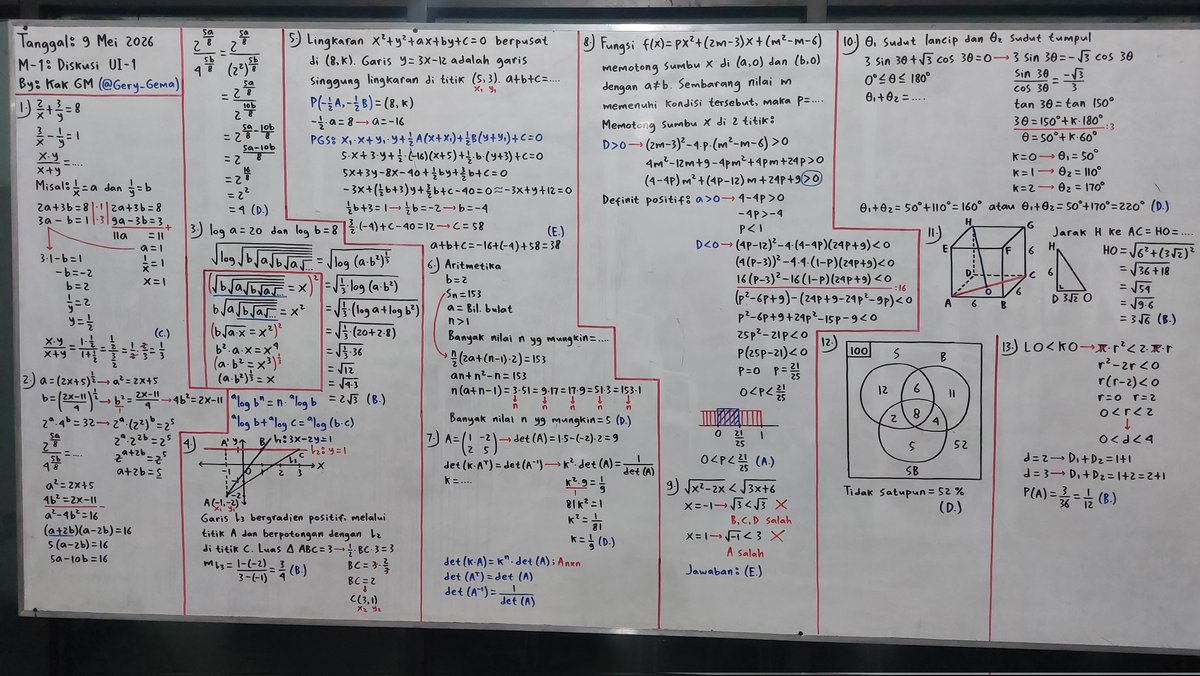 Tanggal: 9 Mei 2026
M-1: Diskusi UI-1
By: Kak GM (@Gery_Gema)
1.) 2/x + 3/y = 8
3/x - 1/y = 1
x.y/(x+y) = ....
Misal: 1/x = a dan 1/y = b
2a+3b=8 |.1| 2a+3b=8
3a-b=1 |.3| 9a-3b=3 +
11a = 11
a = 1
1/x = 1
x = 1
3.1-b=1
-b=-2
b=2
1/y=2
y=1/2
(C.)
x.y/(x+y) = (1.1/2)/(1+1/2) = (1/2)/(3/2) = 1/2.2/3 = 1/3
2.) a=(2x+5)^1/2 → a²=2x+5
b=((2x-11)/4)^1/2 → b²=(2x-11)/4 → 4b²=2x-11
2^a.4^b=32 → 2^a.(2²)^b=2^5
2^a.2^2b=2^5
2^(a+2b)=2^5
a+2b=5
2^(5a/8)/4^(5b/8) = ....
a²=2x+5
4b²=2x-11 -
a²-4b²=16
(a+2b)(a-2b)=16
5(a-2b)=16
5a-10b=16
2^(5a/8)/4^(5b/8) = 2^(5a/8)/(2²)^(5b/8)
= 2^(5a/8)/2^(10b/8)
= 2^(5a/8 - 10b/8)
= 2^((5a-10b)/8)
= 2^(16/8)
= 2²
= 4 (D.)
3.) log a = 20 dan log b = 8
√(log √(b√(a√(b√(a√...))))) = √(log (a.b²)^1/3)
(√(b√(a√(b√(a√...)))) = x)²
b√(a√(b√(a√...))) = x²
(b√(a.x) = x²)²
b².a.x = x⁴
(a.b² = x³)^1/3
(a.b²)^1/3 = x
= √(1/3.log (a.b²))
= √(1/3(log a+log b²))
= √(1/3(20+2.8))
= √(1/3.36)
= √12
= √(4.3)
= 2√3 (B.)
ᵃlog bⁿ = n.ᵃlog b
ᵃlog b+ᵃlog c = ᵃlog (b.c)
4.) A' y B l₁: 3x-2y=1
C l₂: y=1
l₃
-1 0 1 2 3 x
-1
-2
A(-1,-2)
x₁ y₁
Garis l₃ bergradien positif, melalui
titik A dan berpotongan dengan l₂
di titik C. Luas Δ ABC=3 → 1/2.BC.3=3
BC=3.2/3
BC=2
C(3,1)
x₂ y₂
m l₃ = (1-(-2))/(3-(-1)) = 3/4 (B.)
5.) Lingkaran x²+y²+ax+by+c=0 berpusat
di (8,k). Garis y=3x-12 adalah garis
singgung lingkaran di titik (5,3). a+b+c=....
x₁ y₁
P(-1/2A,-1/2B)=(8,k)
-1/2.a=8 → a=-16
PGS: x₁.x+y₁.y+1/2A(x+x₁)+1/2B(y+y₁)+C=0
5.x+3.y+1/2.(-16)(x+5)+1/2.b.(y+3)+c=0
5x+3y-8x-40+1/2by+3/2b+c=0
-3x+(1/2b+3)y+3/2b+c-40=0 ≈ -3x+y+12=0
1/2b+3=1 → 1/2b=-2 → b=-4
3/2.(-4)+c-40=12 → c=58
(E.)
a+b+c=-16+(-4)+58=38
6.) Aritmetika
b=2
Sn=153
a = Bil. bulat
n>1
Banyak nilai n yg mungkin=....
n/2(2a+(n-1).2)=153
an+n²-n=153
n(a+n-1)=3.51=9.17=17.9=51.3=153.1
n n n n n
Banyak nilai n yg mungkin=5 (D.)
7.) A=(1 -2
2 5) → det(A)=1.5-(-2).2=9
det(k.Aᵀ)=det(A⁻¹) → k².det(A)=1/det(A)
k=....
k².9=1/9
81k²=1
k²=1/81
k=1/9 (D.)
det(k.A)=kⁿ.det(A); Anxn
det(Aᵀ)=det(A)
det(A⁻¹)=1/det(A)
8.) Fungsi f(x)=px²+(2m-3)x+(m²-m-6)
memotong sumbu x di (a,0) dan (b,0)
dengan a≠b. Sembarang nilai m
memenuhi kondisi tersebut, maka p=....
Memotong sumbu x di 2 titik:
D>0 → (2m-3)²-4.p.(m²-m-6)>0
4m²-12m+9-4pm²+4pm+24p>0
(4-4p)m²+(4p-12)m+24p+9>0
Definit positif: a>0 → 4-4p>0
-4p>-4
p<1
D<0 → (4p-12)²-4.(4-4p)(24p+9)<0
(4(p-3))²-4.4.(1-p)(24p+9)<0
16(p-3)²-16(1-p)(24p+9)<0 :16
(p²-6p+9)-(24p+9-24p²-9p)<0
p²-6p+9+24p²-15p-9<0
25p²-21p<0
p(25p-21)<0
p=0 p=21/25
0<p<21/25
0 21/25 1
0<p<21/25 (A.)
9.) √(x²-2x)<√(3x+6)
x=-1 → √3<√3 X
B,C,D salah
x=1 → √-1<3 X
A salah
Jawaban: (E.)
10.) θ₁ sudut lancip dan θ₂ sudut tumpul
3 sin 3θ+√3 cos 3θ=0 → 3 sin 3θ=-√3 cos 3θ
0°≤θ≤180°
θ₁+θ₂=....
sin 3θ/cos 3θ = -√3/3
tan 3θ=tan 150°
3θ=150°+k.180° :3
θ=50°+k.60°
k=0 → θ₁=50°
k=1 → θ₂=110°
k=2 → θ₂=170°
θ₁+θ₂=50°+110°=160° atau θ₁+θ₂=50°+170°=220° (D.)
11.) Jarak H ke AC=HO=....
H G
E F 6
D C
6
A 6 B
O
H
6
D 3√2 O
HO=√(6²+(3√2)²)
=√(36+18)
=√54
=√(9.6)
=3√6 (B.)
12.) 100
S B
12 6 11
2 8 4
5 52
SB
Tidak satupun=52 %
(D.)
13.) LO<KO → π.r²<2.π.r
r²-2r<0
r(r-2)<0
r=0 r=2
0<r<2
0<d<4
d=2 → D₁+D₂=1+1
d=3 → D₁+D₂=1+2=2+1
P(A)=3/36=1/12 (B.)